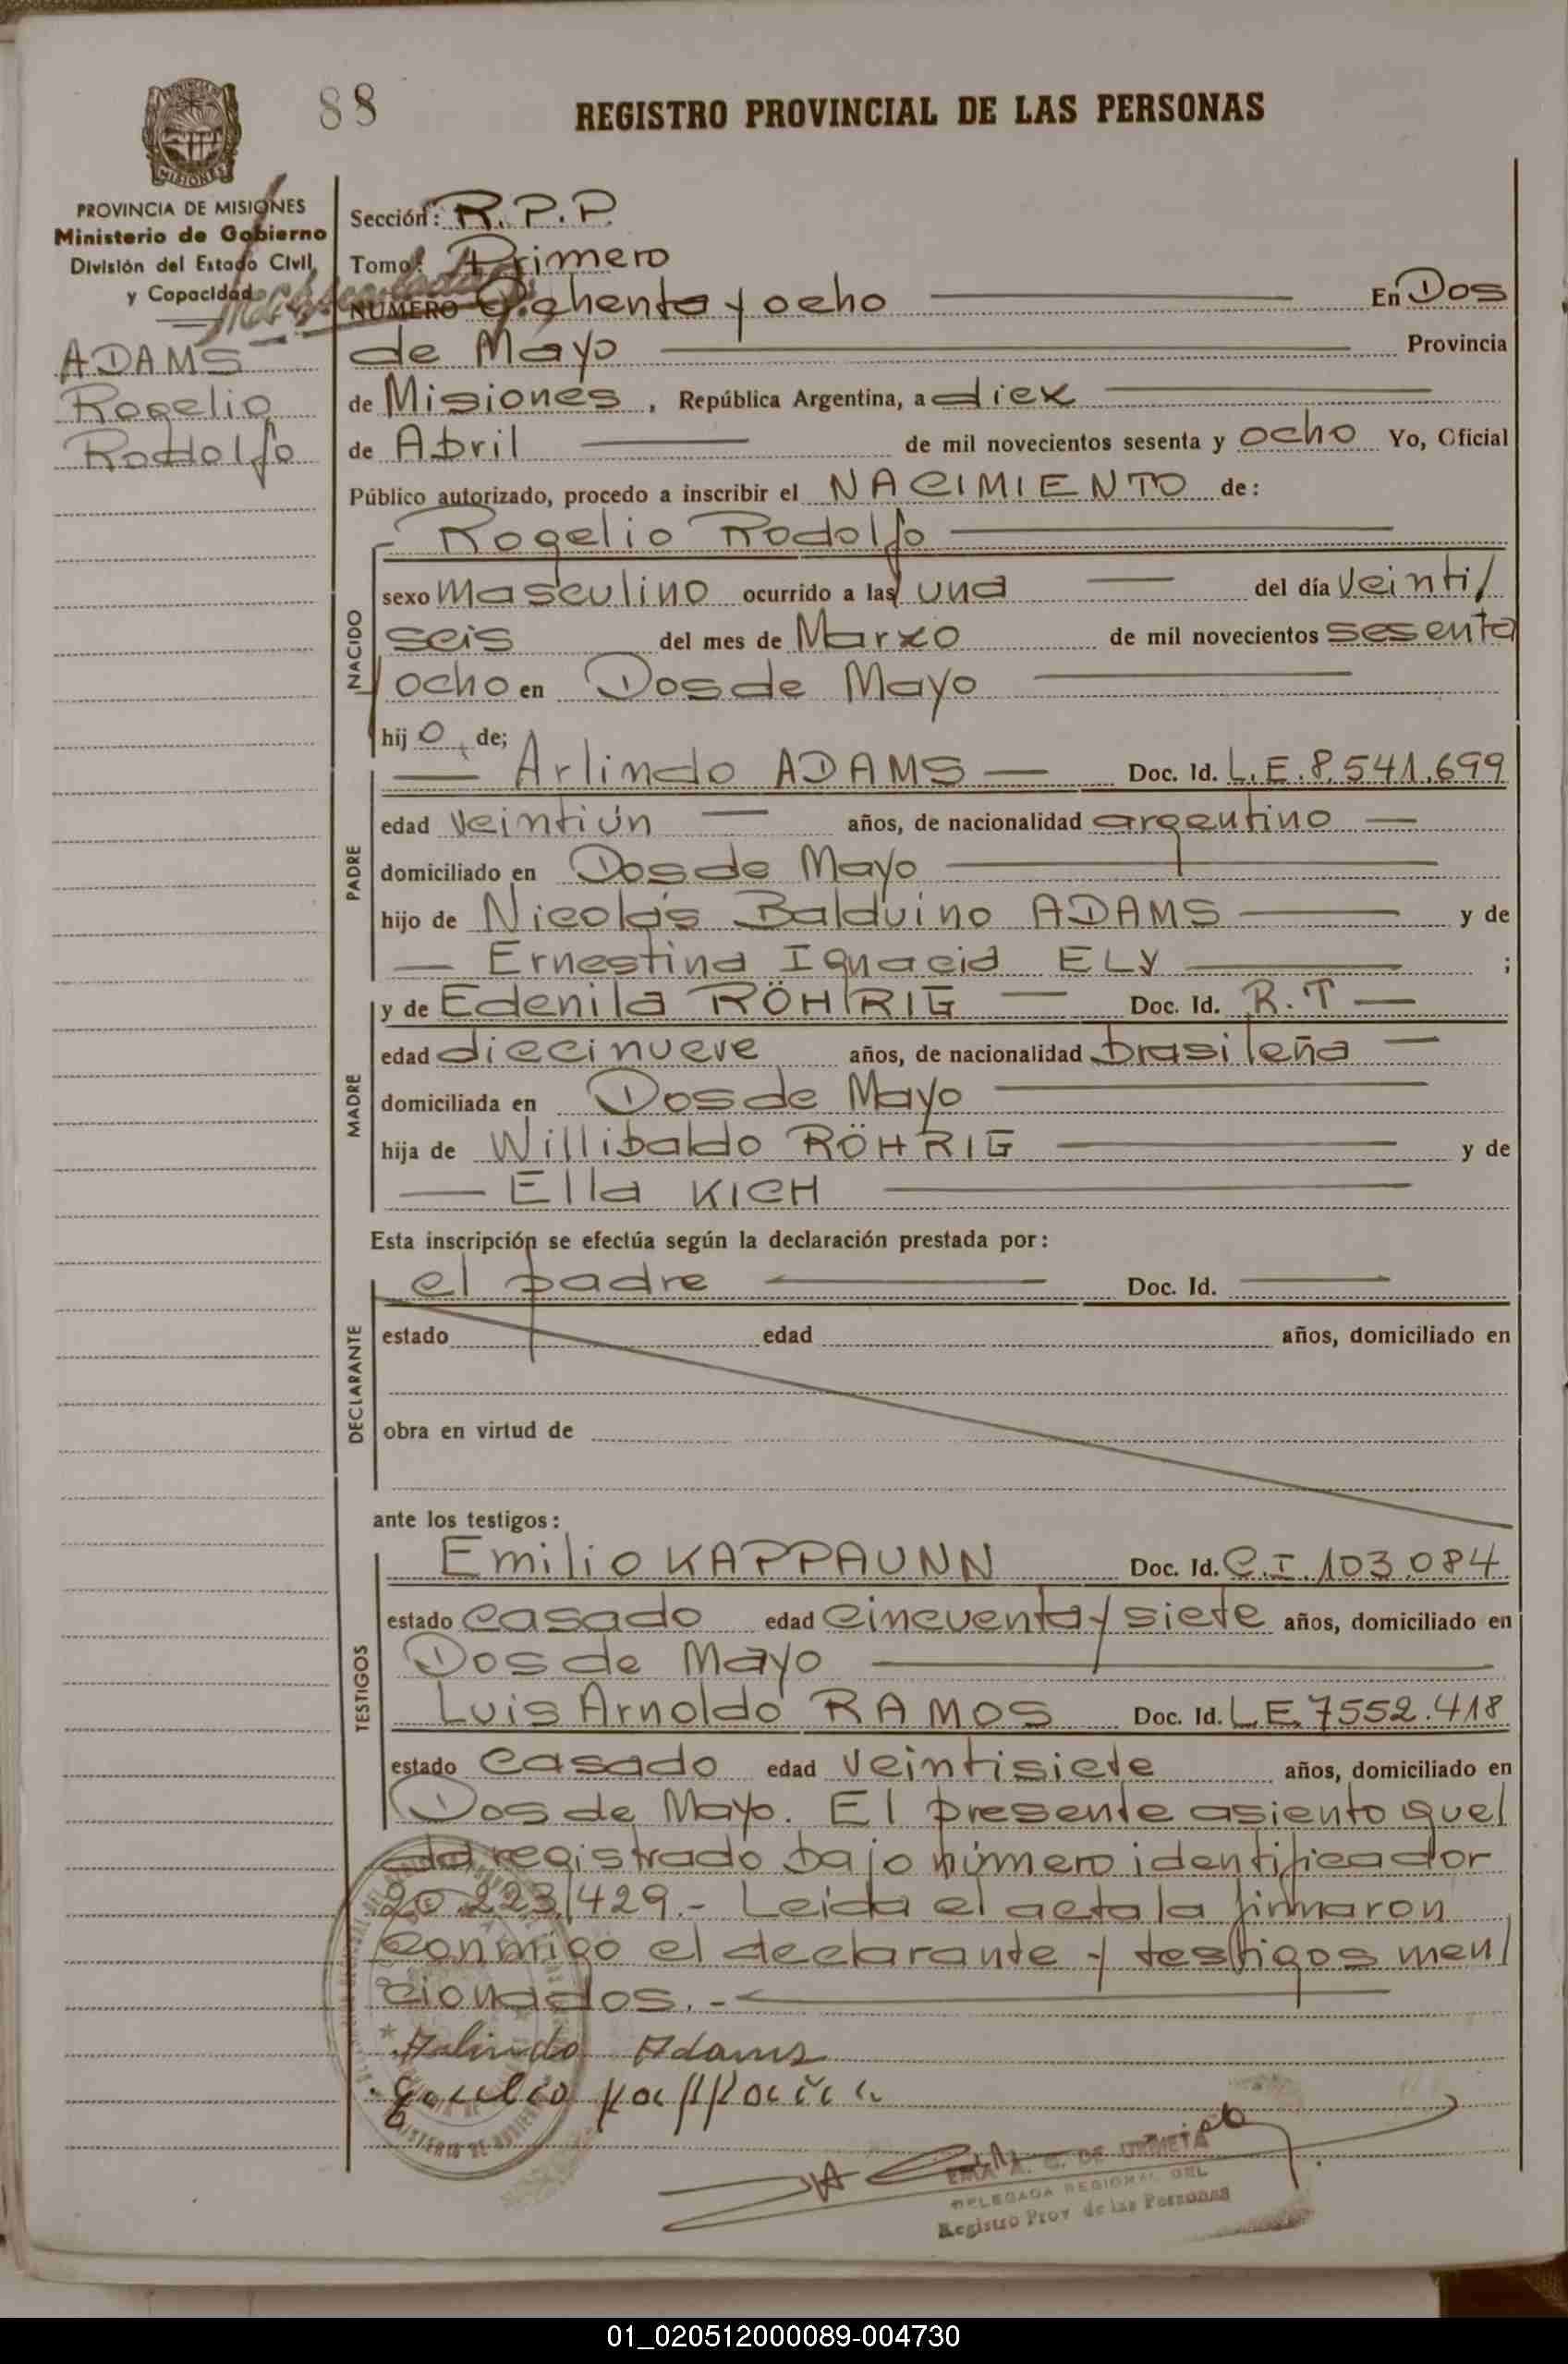 88
REGISTRO PROVINCIAL DE LAS PERSONAS
MISIONES
PROVINCIA DE MISIONES
Ministerio de Gobierno
División del Estado Civil
y Capacidad
ADAMS
Rogelio
Rodolfo
Sección: R.P.P.
Tomo: Primero
NUMERO Ochenta y ocho En Dos
de Mayo Provincia
de Misiones, República Argentina, a diez
de Abril de mil novecientos sesenta y ocho Yo, Oficial
Público autorizado, procedo a inscribir el NACIMIENTO de:
Rogelio Rodolfo
NACIDO
sexo masculino ocurrido a las una del día veinti/
seis del mes de Marzo de mil novecientos sesenta
y ocho en Dos de Mayo
hijo de;
PADRE
Arlindo ADAMS Doc. Id. L.E. 8.541.699
edad veintiún años, de nacionalidad argentino
domiciliado en Dos de Mayo
hijo de Nicolás Balduino ADAMS y de
Ernestina Ignacia ELY ;
MADRE
y de Edenila RÖHRIG Doc. Id. R.T
edad diecinueve años, de nacionalidad brasileña
domiciliada en Dos de Mayo
hija de Willibaldo RÖHRIG y de
Ella KICH
Esta inscripción se efectúa según la declaración prestada por:
DECLARANTE
el padre Doc. Id.
estado edad años, domiciliado en
obra en virtud de
ante los testigos:
TESTIGOS
Emilio KAPPAUNN Doc. Id. C.I. 103.084
estado casado edad cincuenta y siete años, domiciliado en
Dos de Mayo
Luis Arnoldo RAMOS Doc. Id. L.E. 7552.418
estado casado edad veintisiete años, domiciliado en
Dos de Mayo. El presente asiento que/
da registrado bajo número identificador
20.223.429.- Leida el acta la firmaron
conmigo el declarante y testigos men/
cionados.-
Arlindo Adams
EMA A. G. DE URMETA
DELEGADA REGIONAL DEL
Registro Prov de las Personas
01_020512000089-004730